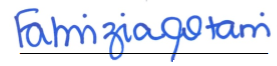 Fabrizia Gotani